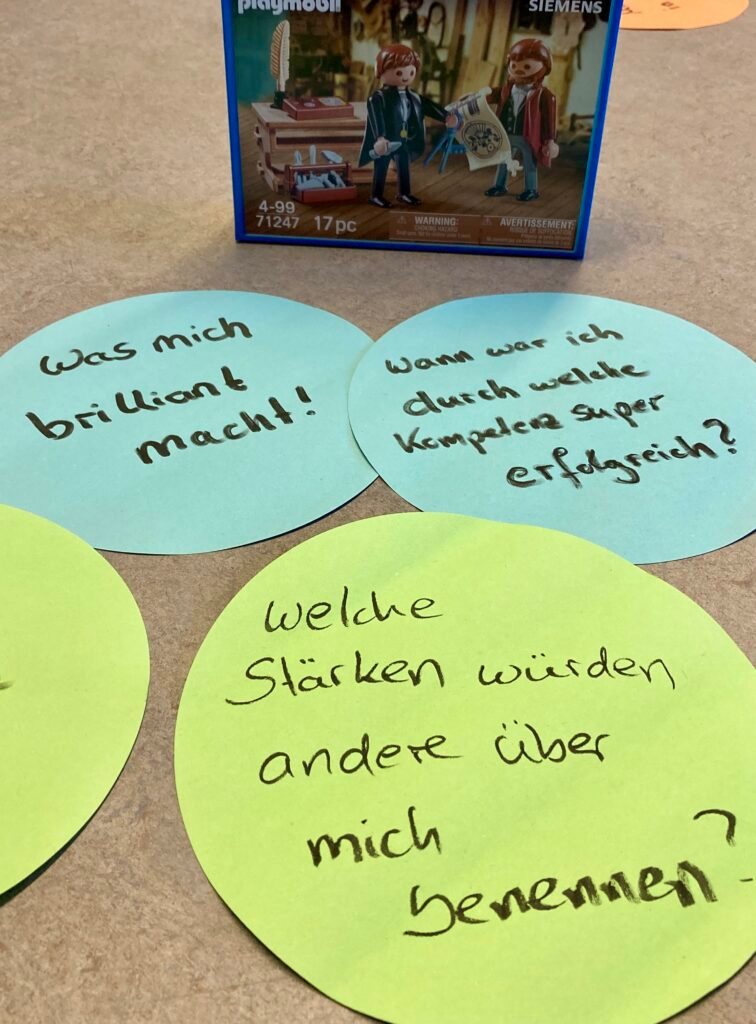 playmobil
SIEMENS
4-99
71247 17pc
WARNING:
CHOKING HAZARD
AVERTISSEMENT:
Was mich
brilliant
macht!
Wann war ich
durch welche
Kompetenz super
erfolgreich?
Welche
Stärken würden
andere über
mich
benennen?